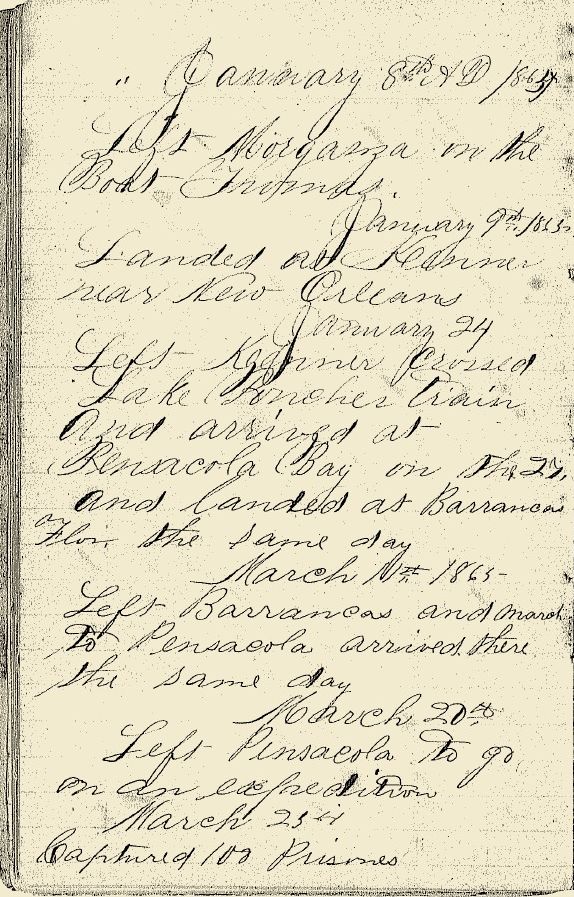 " January 8th AD 1865
Left Morganza on the
Boat Thomas.
January 9th 1865
Landed at Kenner
near New Orleans
January 24
Left Kennner Crossed
Lake Poncher train
And arrived at
Pensacola Bay on the 27,
And landed at Barrancas
Flor. the same day
March 11th 1865
Left Barrancas and march
To Pensacola arrived there
the same day
March 20th
Left Pensacola to go
on an expedition
March 25th
Captured 100 Prisnes